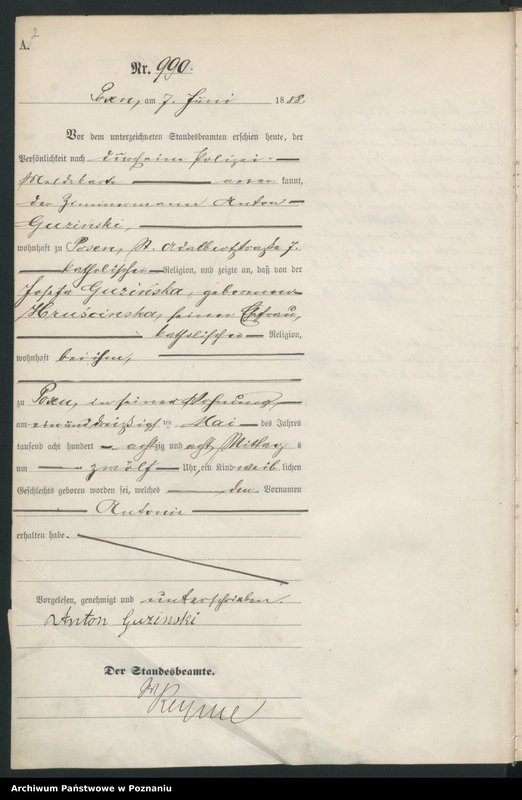 2
A.
Nr. 990.
Posen, am 7. Juni 1888.
Vor dem unterzeichneten Standesbeamten erschien heute, der
Persönlichkeit nach durch eine Polizei-
Meldekarte anerkannt,
der Zimmermann Anton
Guziński,
wohnhaft zu Posen, St. Adalbertstraße 7.
katholischer Religion, und zeigte an, daß von der
Josefa Guzińska, geborenen
Hruścinska, seiner Ehefrau,
katholischer Religion,
wohnhaft bei ihm,
zu Posen, in seiner Wohnung,
am ein und dreißigsten Mai des Jahres
tausend acht hundert achtzig und acht Mittags
um zwölf Uhr, ein Kind weiblichen
Geschlechts geboren worden sei, welches den Vornamen
Antonie
erhalten habe.
Vorgelesen, genehmigt und unterschrieben.
Anton Guzinski
Der Standesbeamte.
Archiwum Państwowe w Poznaniu